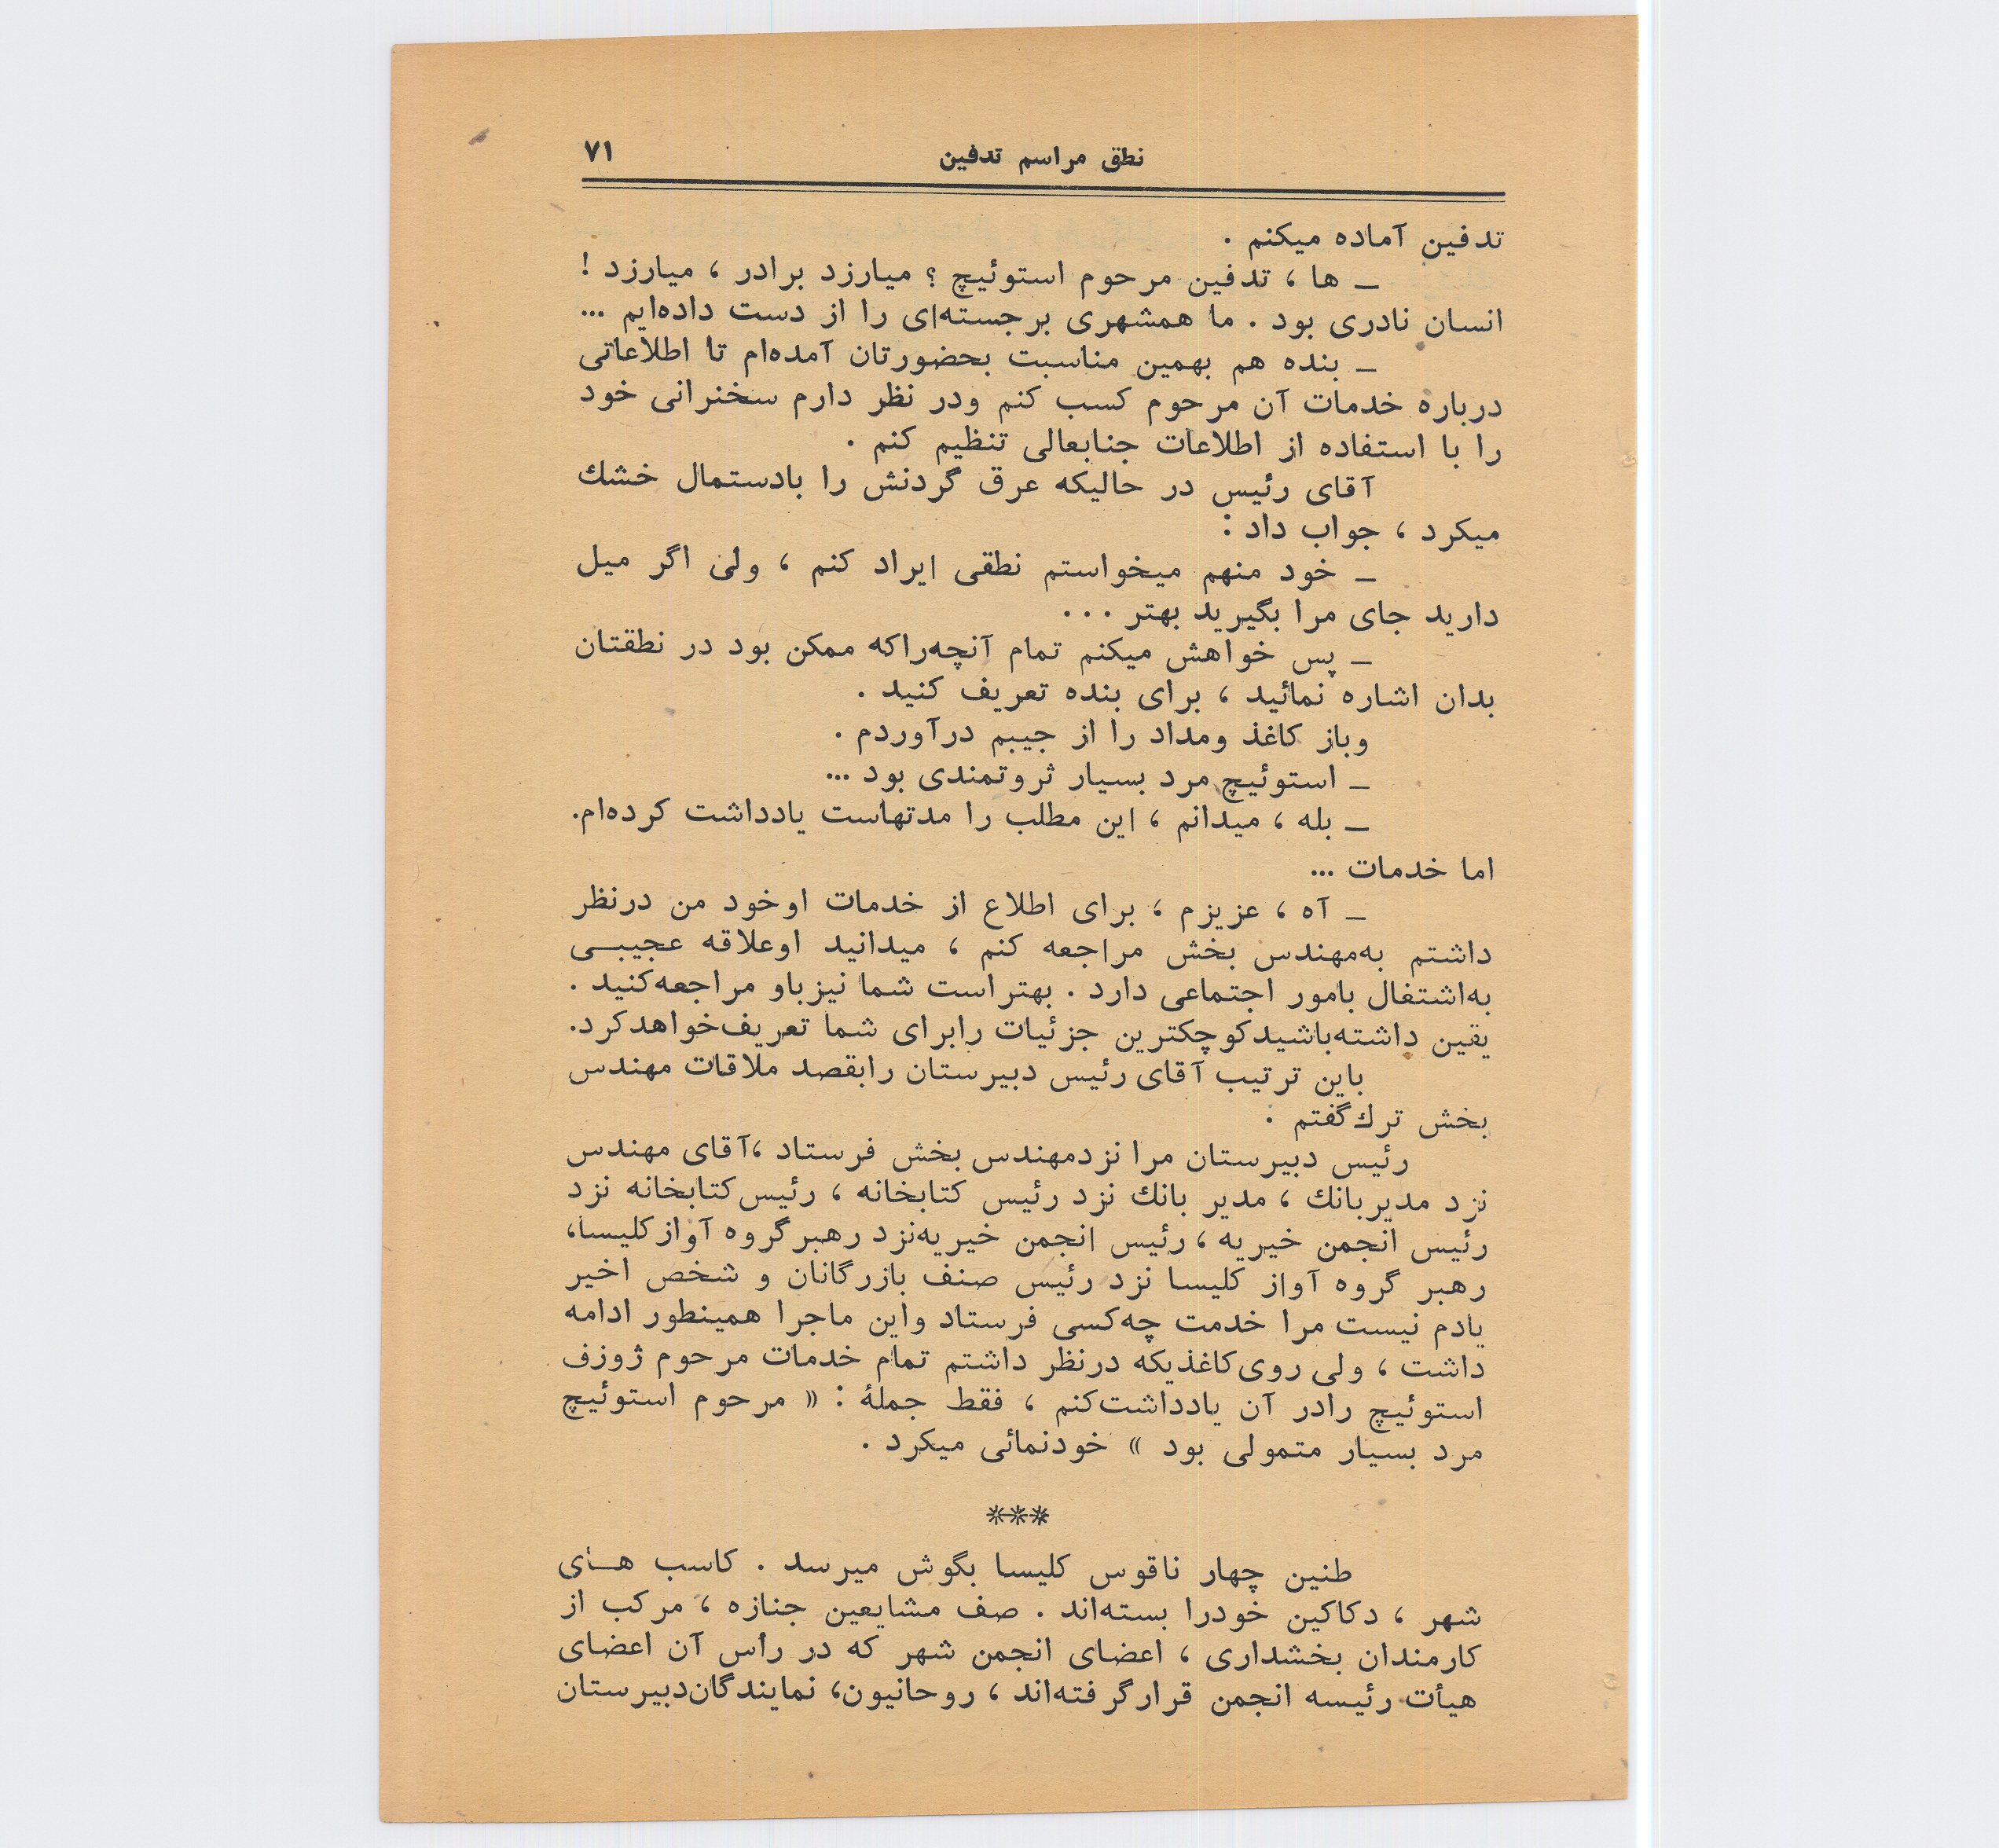 نطق مراسم تدفین ۷۱
تدفین آماده میکنم .
ـ ها ، تدفین مرحوم استوئیچ ؟ میارزد برادر ، میارزد !
انسان نادری بود . ما همشهری برجسته‌ای را از دست داده‌ایم ...
ـ بنده هم بهمین مناسبت بحضورتان آمده‌ام تا اطلاعاتی
درباره خدمات آن مرحوم کسب کنم ودر نظر دارم سخنرانی خود
را با استفاده از اطلاعات جنابعالی تنظیم کنم .
آقای رئیس در حالیکه عرق گردنش را بادستمال خشك
میکرد ، جواب داد :
ـ خود منهم میخواستم نطقی ایراد کنم ، ولی اگر میل
دارید جای مرا بگیرید بهتر . . .
ـ پس خواهش میکنم تمام آنچه‌راکه ممکن بود در نطقتان
بدان اشاره نمائید ، برای بنده تعریف کنید .
وباز کاغذ ومداد را از جیبم درآوردم .
ـ استوئیچ مرد بسیار ثروتمندی بود ...
ـ بله ، میدانم ، این مطلب را مدتهاست یادداشت کرده‌ام.
اما خدمات ...
ـ آه ، عزیزم ، برای اطلاع از خدمات اوخود من درنظر
داشتم به‌مهندس بخش مراجعه کنم ، میدانید اوعلاقه عجیبـی
به‌اشتغال بامور اجتماعی دارد . بهتراست شما نیزباو مراجعه‌کنید .
یقین داشته‌باشیدکوچکترین جزئیات رابرای شما تعریف‌خواهدکرد.
باین ترتیب آقای رئیس دبیرستان رابقصد ملاقات مهندس
بخش ترك‌گفتم .
رئیس دبیرستان مرا نزدمهندس بخش فرستاد ،آقای مهندس
نزد مدیربانك ، مدیر بانك نزد رئیس کتابخانه ، رئیس‌کتابخانه نزد
رئیس انجمن خیریه ، رئیس انجمن خیریه‌نزد رهبرگروه آوازکلیسا،
رهبر گروه آواز کلیسا نزد رئیس صنف بازرگانان و شخص اخیر
یادم نیست مرا خدمت چه‌کسی فرستاد واین ماجرا همینطور ادامه
داشت ، ولی روی‌کاغذیکه درنظر داشتم تمام خدمات مرحوم ژوزف
استوئیچ رادر آن یادداشت‌کنم ، فقط جملهٔ : « مرحوم استوئیچ
مرد بسیار متمولی بود » خودنمائی میکرد .
***
طنین چهار ناقوس کلیسا بگوش میرسد . کاسب هـای
شهر ، دکاکین خودرا بسته‌اند . صف مشایعین جنازه ، مرکب از
کارمندان بخشداری ، اعضای انجمن شهر که در رأس آن اعضای
هیأت رئیسه انجمن قرارگرفته‌اند ، روحانیون، نمایندگان‌دبیرستان